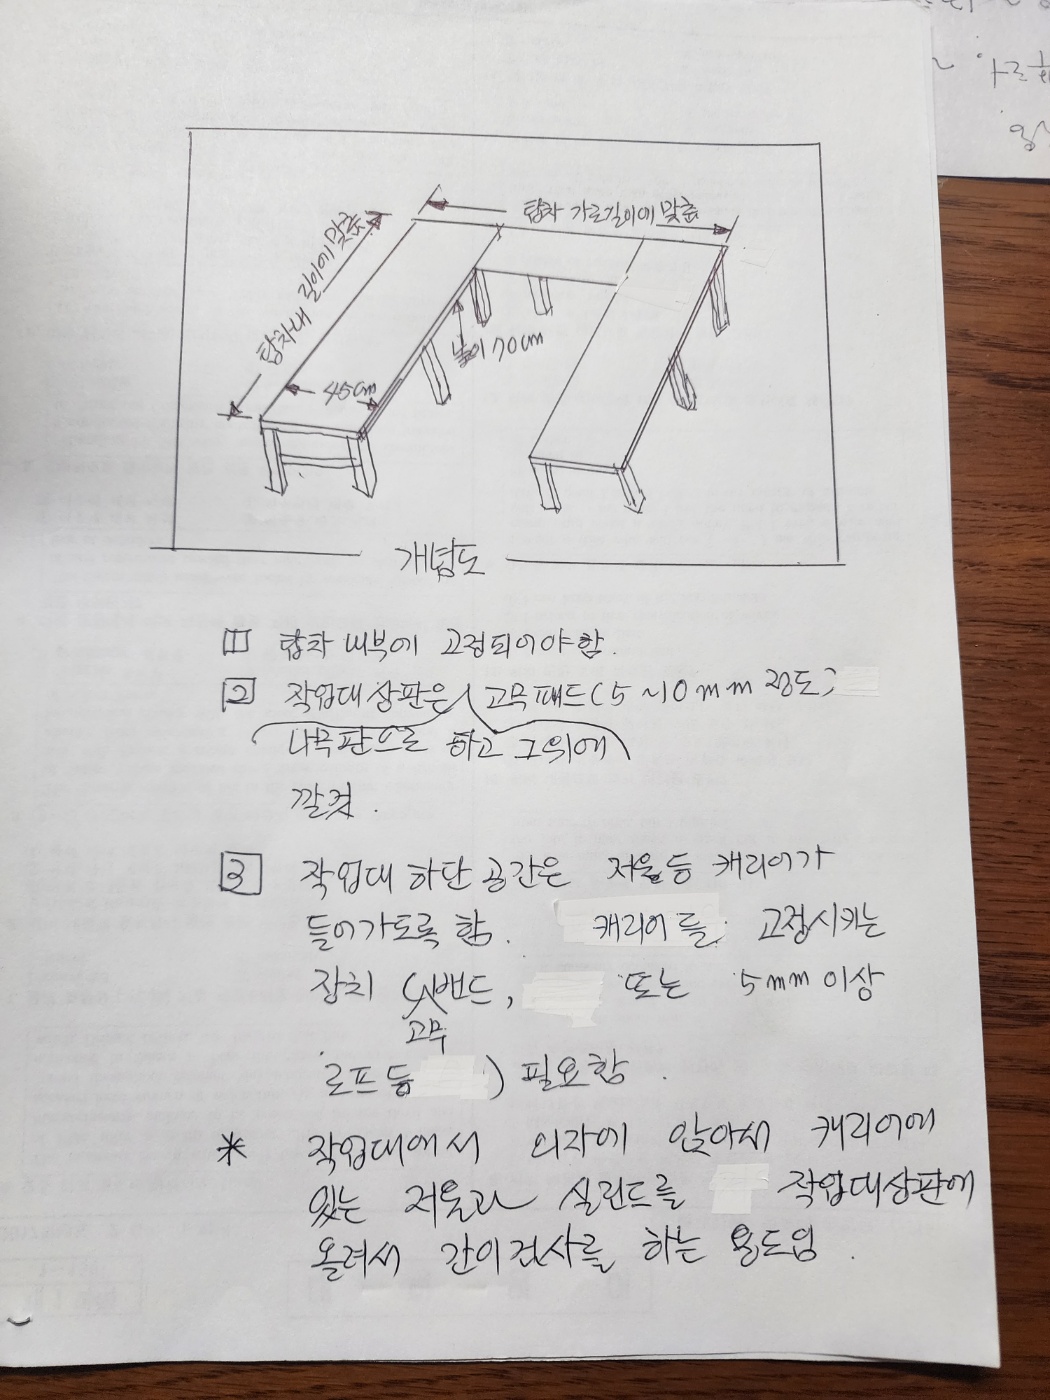 탑차 가로길이에 맞춤
탑차내 길이에 맞춤
45cm
높이 70cm
개념도
1 탑차 내부에 고정되어야함.
2 작업대 상판은 고무패드(5~10mm 정도)
나무판으로 하고 그위에
깔것.
3 작업대 하단 공간은 저울등 캐리어가
들어가도록 함. 캐리어를 고정시키는
장치 (고무밴드, 또는 5mm이상
로프등) 필요함.
* 작업대에서 의자에 앉아서 캐리어에
있는 저울과 실린드를 작업대상판에
올려서 간이검사를 하는 용도임.